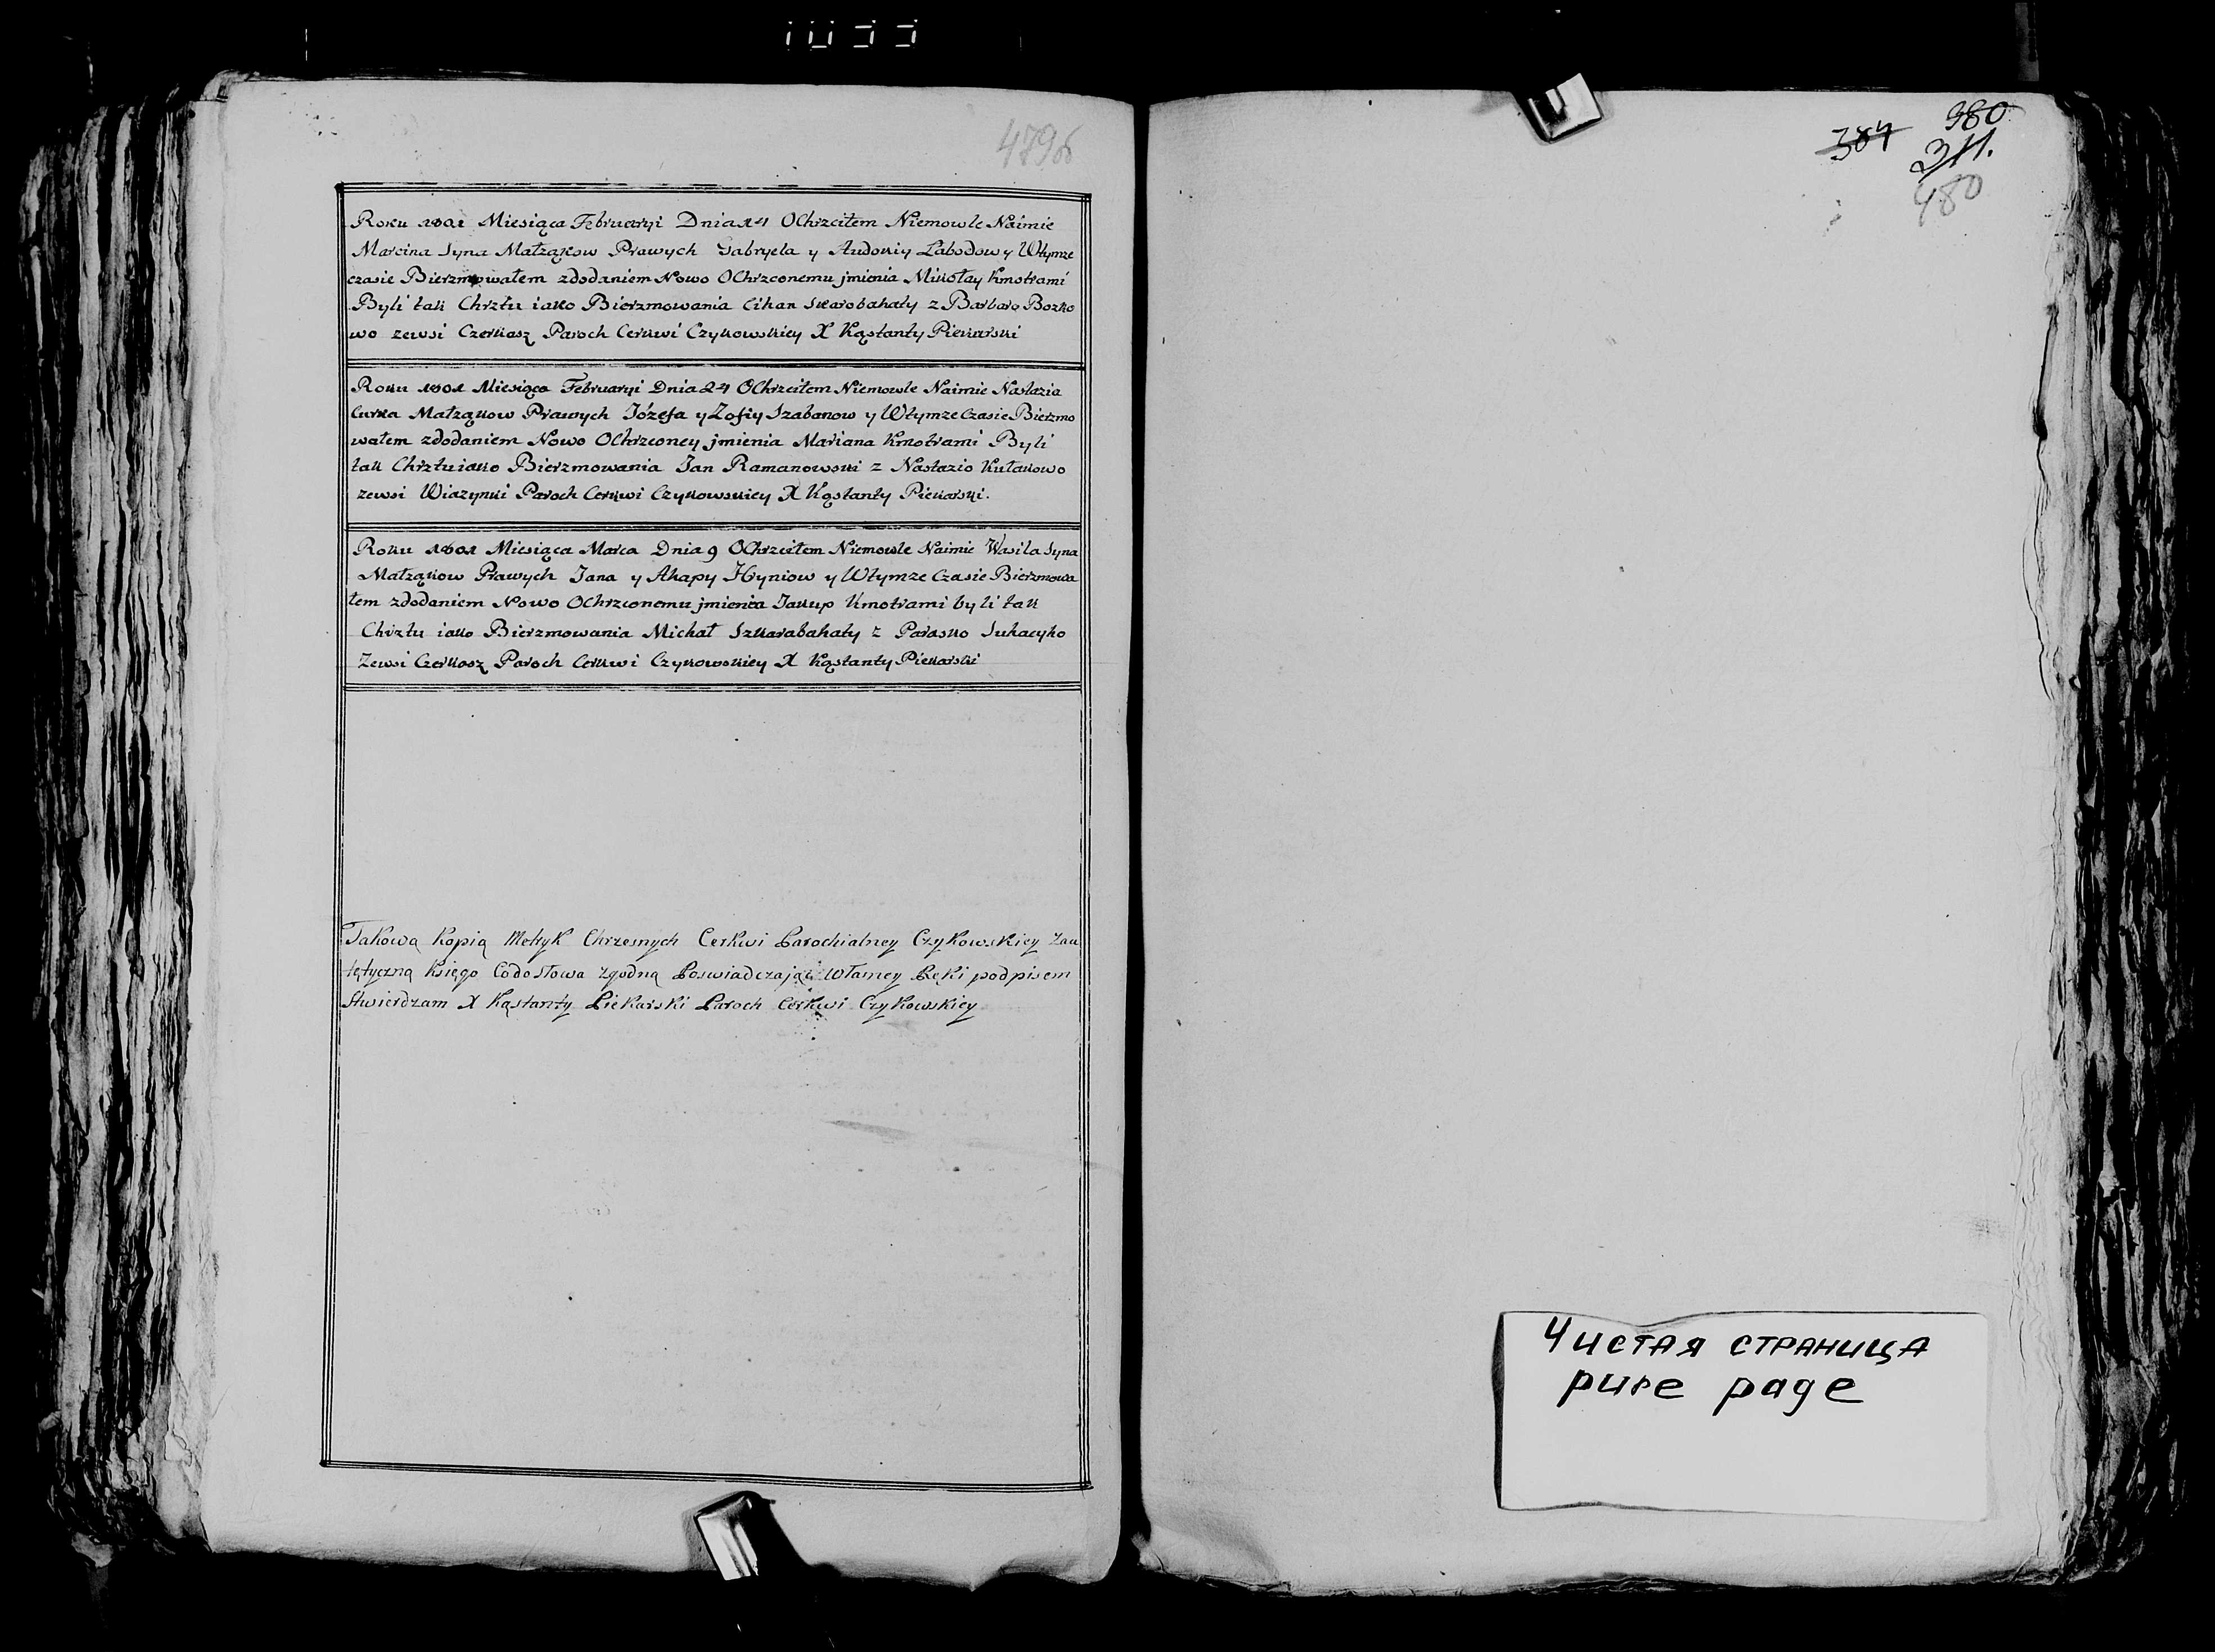 479об
Roku 1801 Miesiąca Februaryi Dnia 14 Ochrzciłem Niemowle Naimie
Marcina Syna Małząkow Prawych Gabryela y Audokiy Labodow y Wtymze
czasie Bierzmowałem zdodaniem Nowo Ochrzconemu jmienia Mikołay Kmotrami
Byli tak Chrztu iako Bierzmowania Cihan Skarobahaty z Barbaro Bozko
wo zewsi Czerkasz Paroch Cerkwi Czykowskiey X Kąstanty Piekarski
Roku 1801 Miesiąca Februaryi Dnia 24 Ochrzciłem Niemowle Naimie Nastazia
Curka Małząkow Prawych Józefa y Zofiy Szabanow y Wtymze Czasie Bierzmo
wałem zdodaniem Nowo Ochrzconey jmienia Mariana Kmotrami Byli
tak Chrztu iako Bierzmowania Jan Ramanowski z Nastazio Kułakowo
zewsi Wiazynki Paroch Cerkwi Czykowskiey X Kąstanty Piekarski.
Roku 1801 Miesiąca Marca Dnia 9 Ochrzciłem Niemowle Naimie Wasila Syna
Małząkow Prawych Jana y Ahapy Hryniow y Wtymze Czasie Bierzmowa
łem zdodaniem Nowo Ochrzconemu jmienia Jakup Kmotrami byli tak
Chrztu iako Bierzmowania Michał Szkarabahaty z Parasko Suhacyho
Zewsi Czerkasz Paroch Cerkwi Czykowskiey X Kąstanty Piekarski
Takową Kopią Metryk Chrzesnych Cerkwi Parochialney Czykowskiey Zau
tętyczną Księgo Codosłowa zgodną Poswiadczając Własney Ręki podpisem
Stwierdzam X Kąstanty Piekarski Paroch Cerkwi Czykowskiey
384 980
311.
480
Чистая страница
pure page